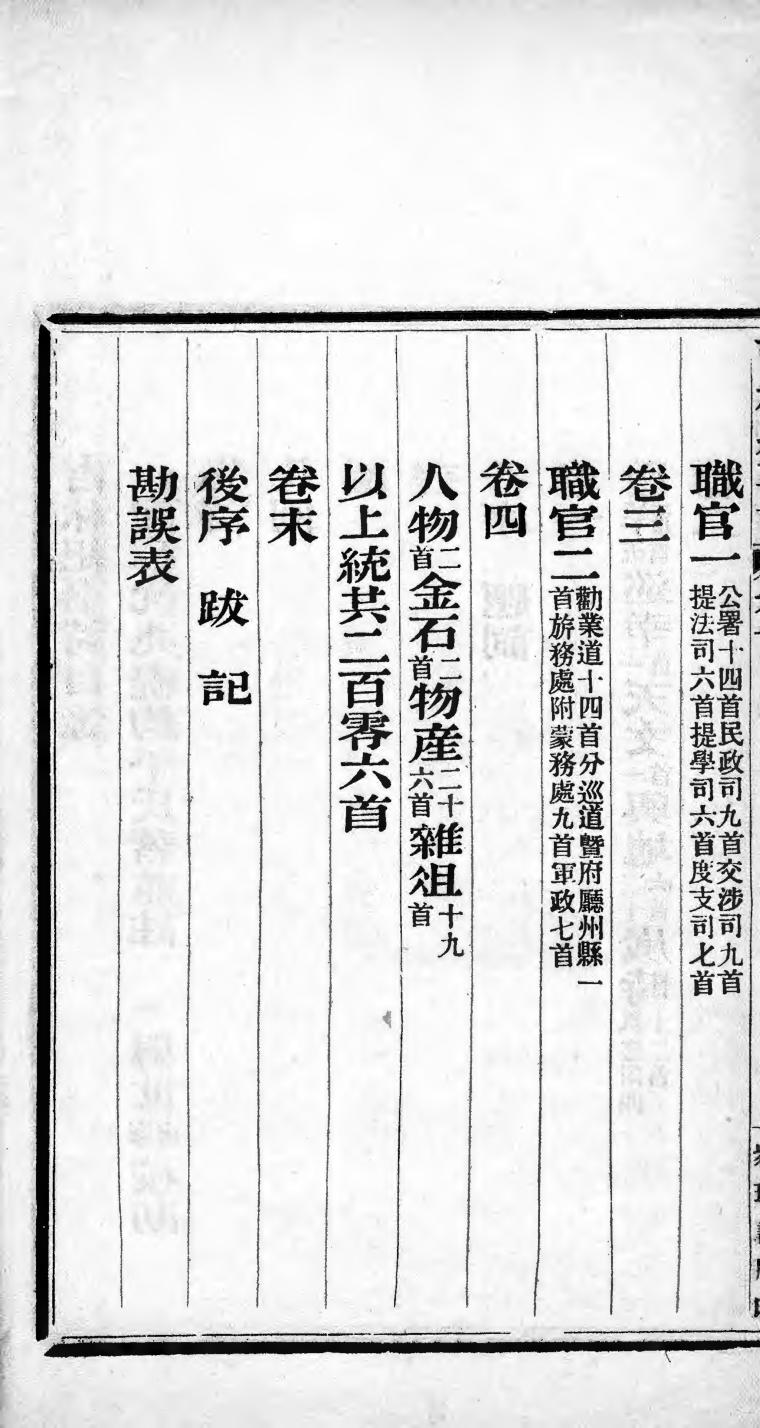 職官一公署十四首民政司九首交涉司九首提法司六首提學司六首度支司七首
卷三
職官二勸業道十四首分巡道暨府廳州縣一首旂務處附蒙務處九首軍政七首
卷四
人物二首金石二首物產二十六首雜俎十九首
以上統共二百零六首
卷末
後序 跋 記
勘誤表